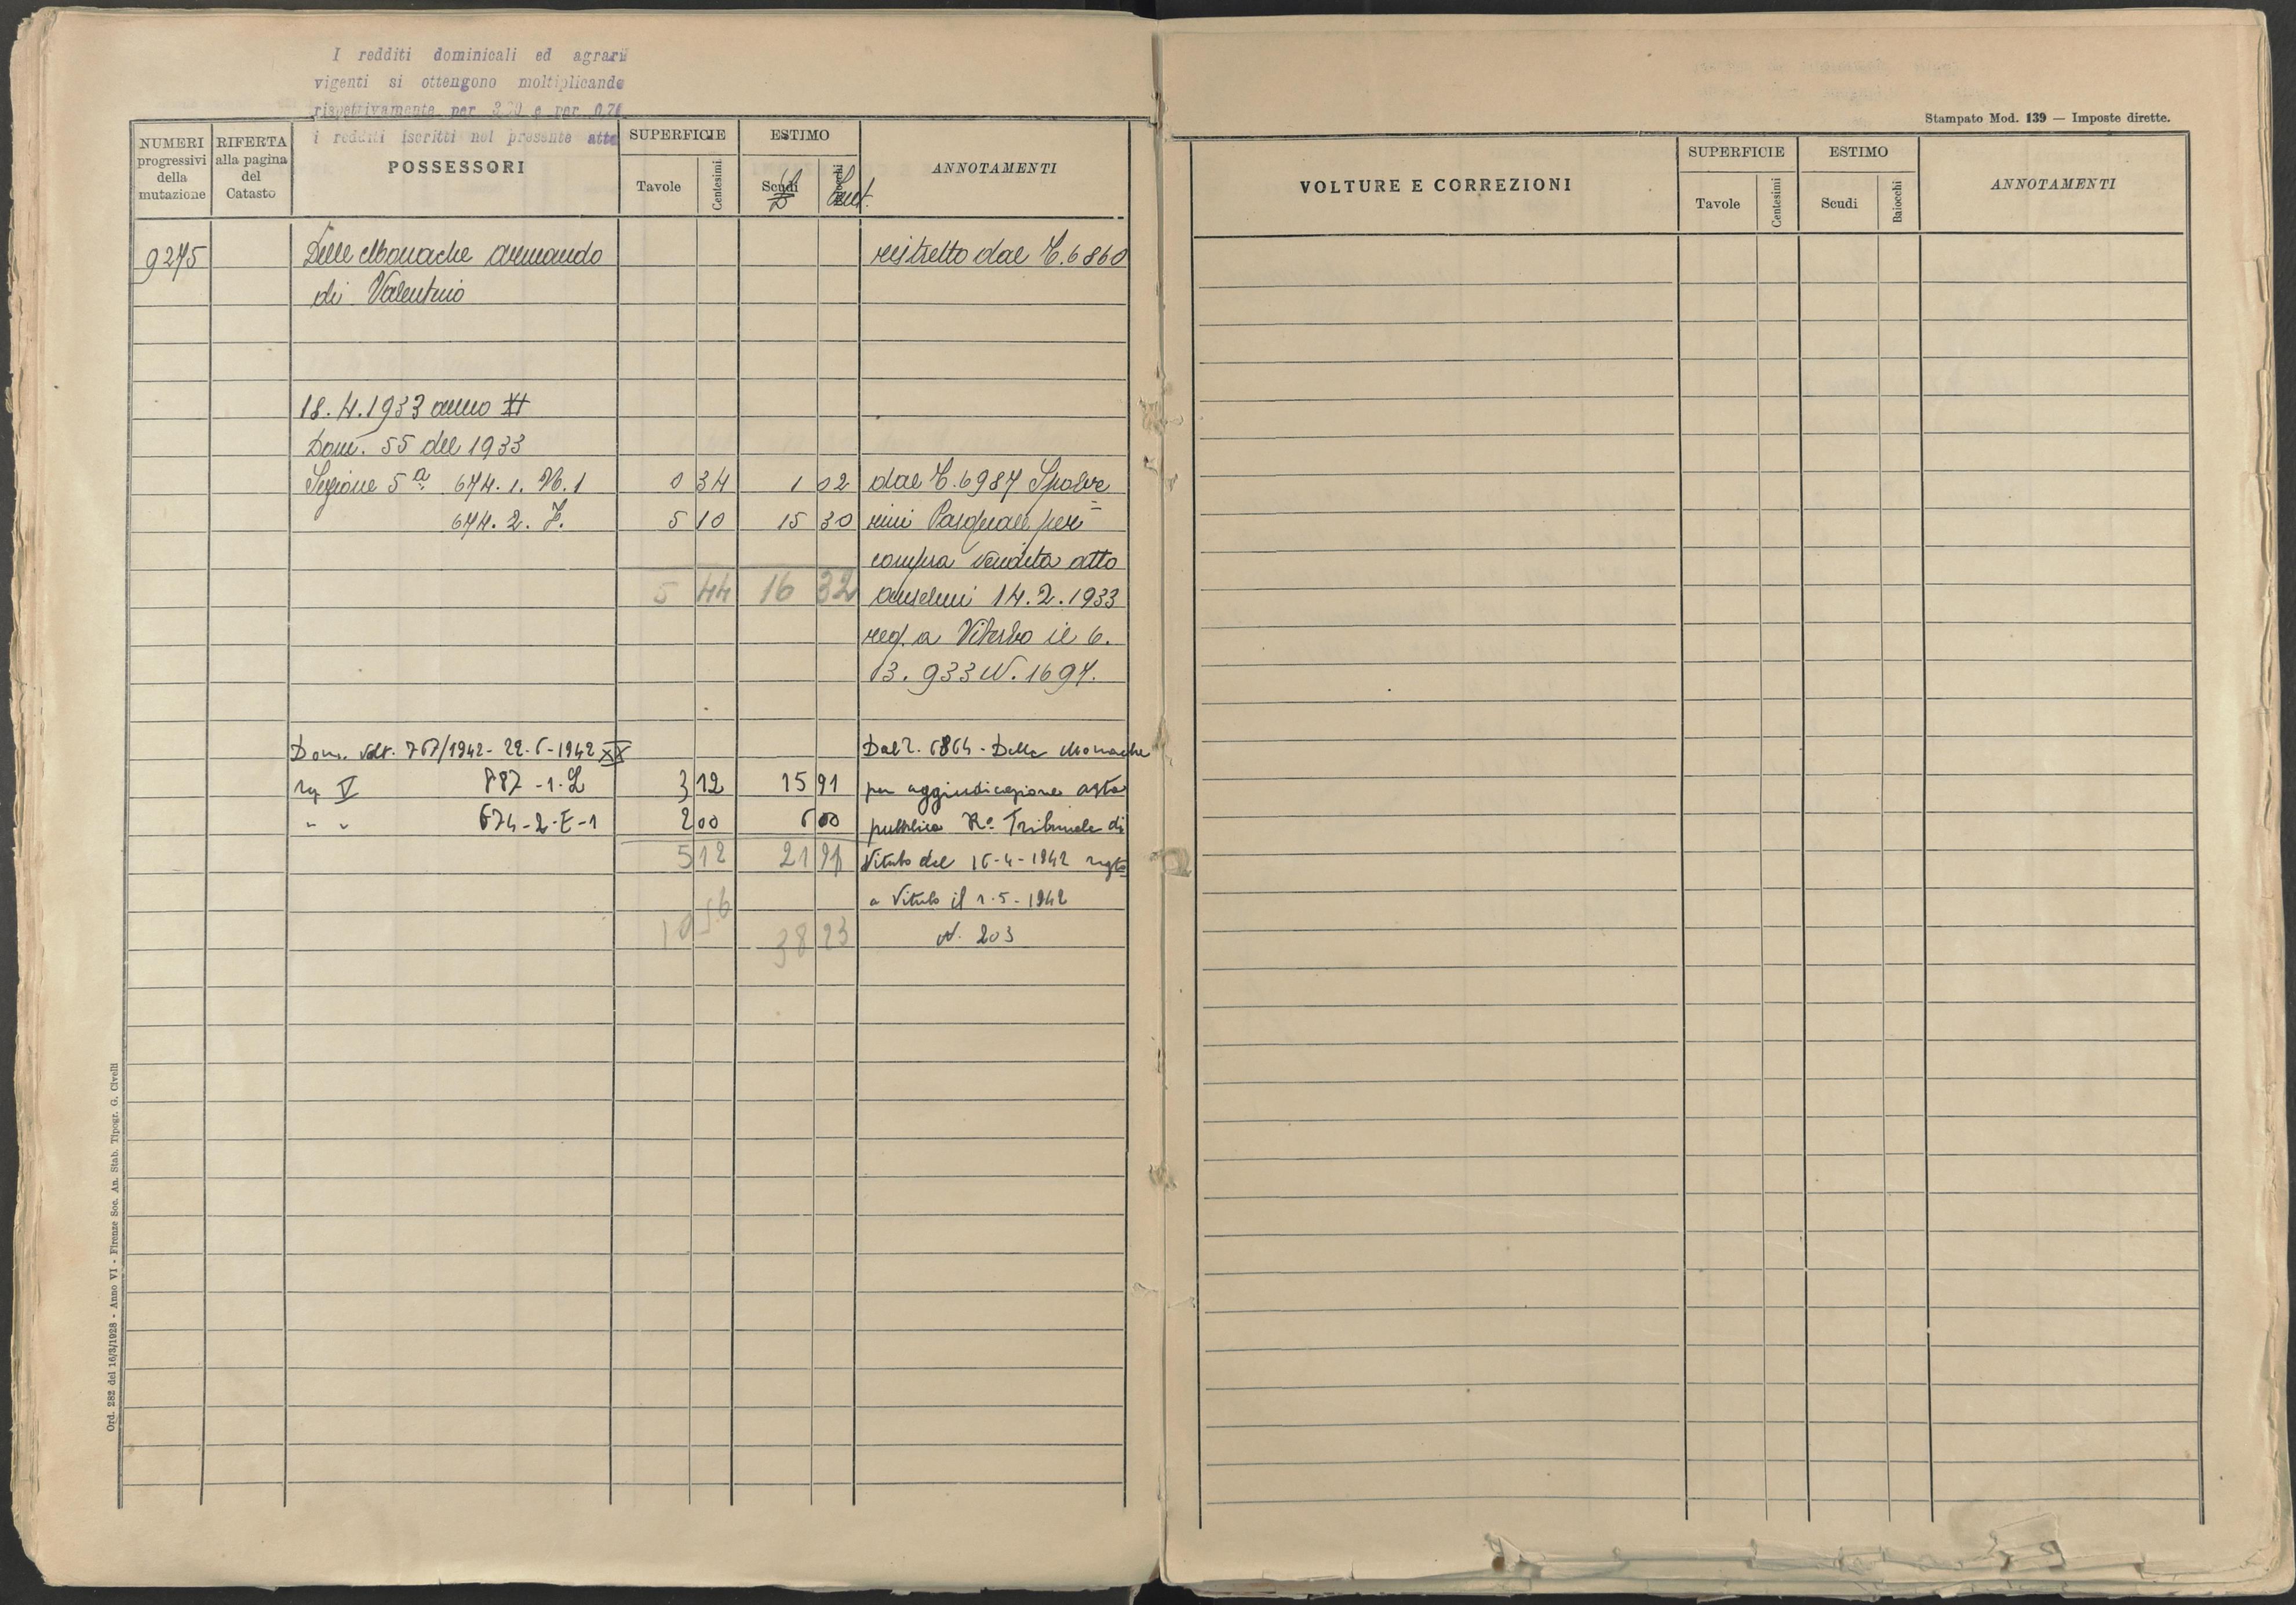 I redditi dominicali ed agrarii
vigenti si ottengono moltiplicando
rispettivamente per e per 0,70
i redditi iscritti nel presente atto
NUMERI progressivi della mutazione
RIFERTA alla pagina del Catasto
POSSESSORI
SUPERFICIE
Tavole Centesimi
ESTIMO
Scudi Baiocchi
£ Cent.
ANNOTAMENTI
9275 Delle Monache Armando ristretto dal C. 6860
di Valentino
18.4.1933 anno XI
Dom. 55 del 1933
Sezione 5ª 674.1. 1 0 34 1 02 dal C. 6987 Spolve=
674.2. 5 10 15 30 rini Pasquale per
compra vendita atto
5 44 16 32 Anselmi 14.2.1933
reg. a Viterbo il 6.
13.933 N. 1697.
Dom. Volt. 767/1942 - 22-6-1942 XX Dal 2. 6864 - Delle Monache
V 887 -1. L 3 12 15 91 per aggiudicazione asta
" " 674-2-E-1 2 00 6 00 pubblica R.° Tribunale di
5 12 21 91 Viterbo del 16-4-1942 regto
a Viterbo il 1-5-1942
10 56 38 23 N. 203
Ord. 282 del 16/3/1928 - Anno VI - Firenze Soc. An. Stab. Tipogr. G. Civelli
Stampato Mod. 139 — Imposte dirette.
VOLTURE E CORREZIONI
SUPERFICIE
Tavole Centesimi
ESTIMO
Scudi Baiocchi
ANNOTAMENTI